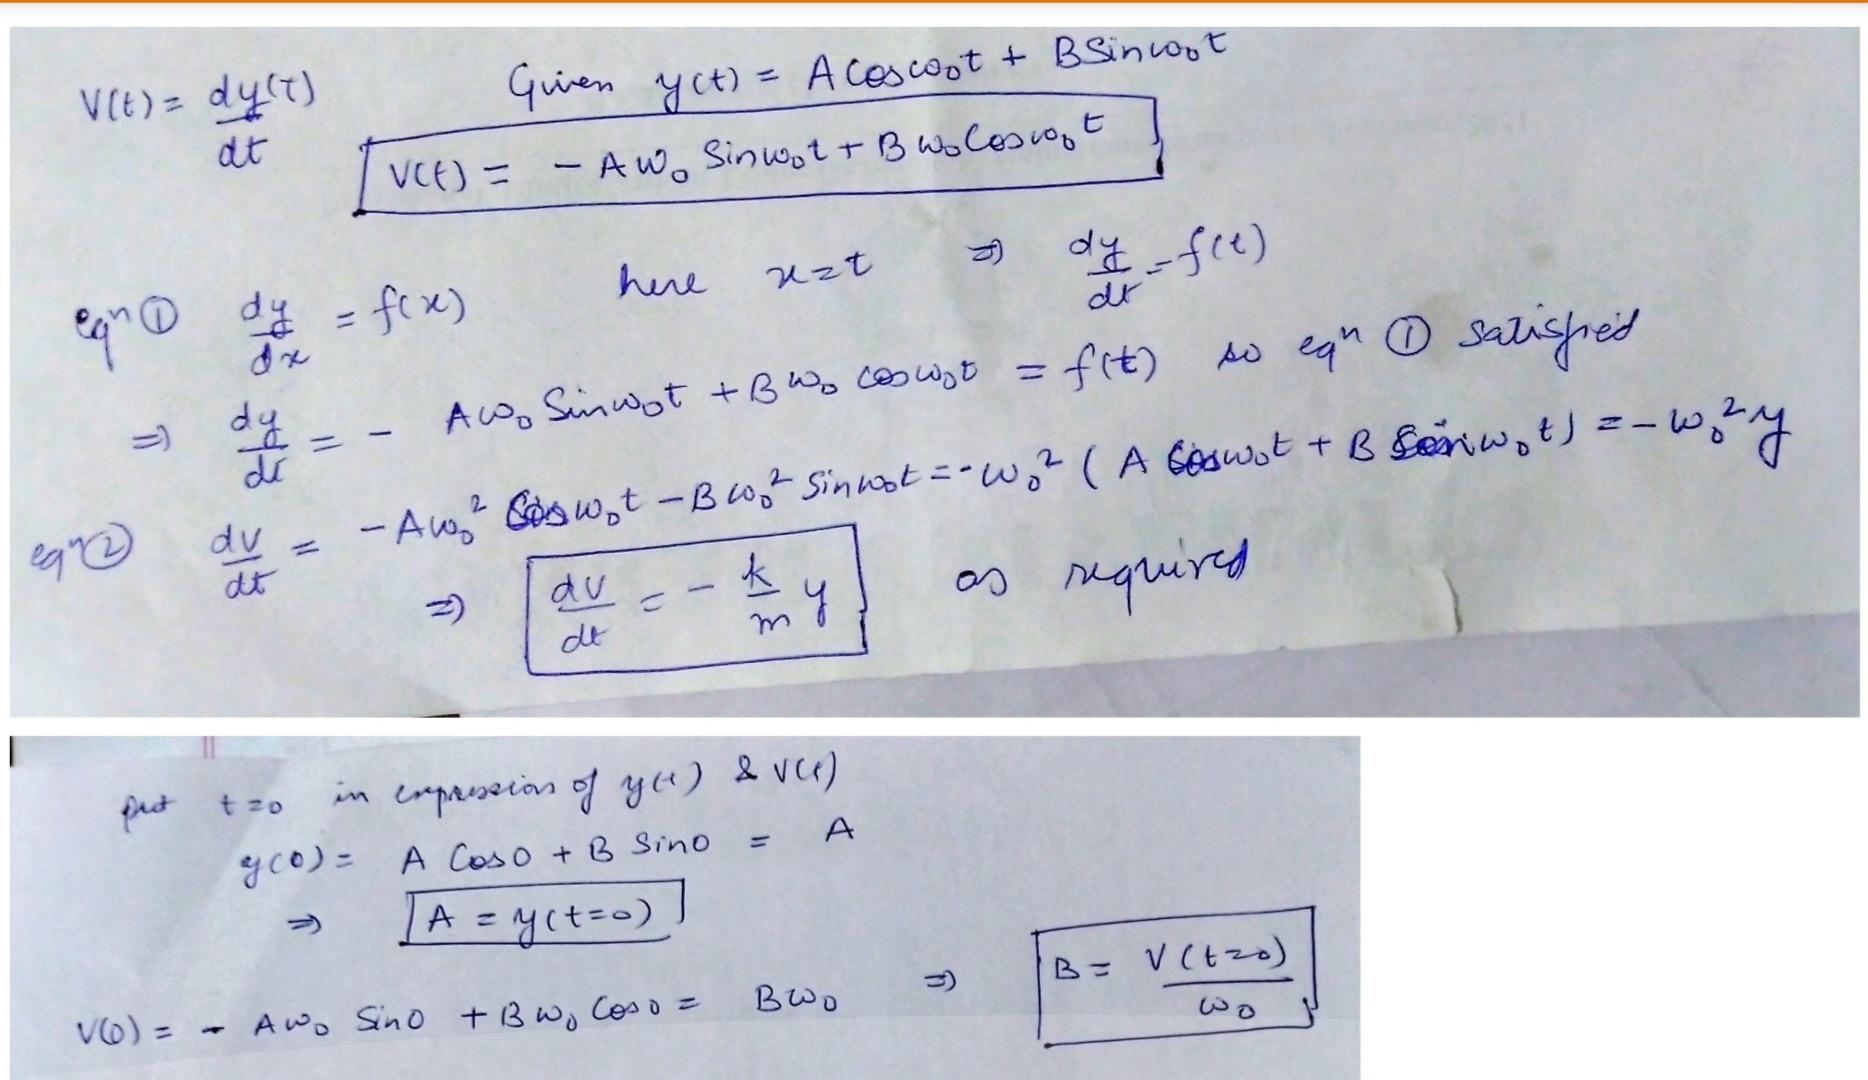 V(t) = dy(t)/dt Given y(t) = A Cosω₀t + B Sinω₀t
V(t) = - Aω₀ Sinω₀t + Bω₀ Cosω₀t
eqⁿ ① dy/dx = f(x) here x=t ⇒ dy/dt = f(t)
⇒ dy/dt = - Aω₀ Sinω₀t + Bω₀ cosω₀t = f(t) so eqⁿ ① satisfied
eqⁿ ② dv/dt = -Aω₀² Cosω₀t - Bω₀² Sinω₀t = -ω₀² (A Cosω₀t + B Sinω₀t) = -ω₀²y
⇒ dv/dt = - k/m y as required
put t=0 in expression of y(t) & V(t)
y(0) = A Cos0 + B Sin0 = A
⇒ A = y(t=0)
V(0) = - Aω₀ Sin0 + Bω₀ Cos0 = Bω₀ ⇒ B = V(t=0)/ω₀